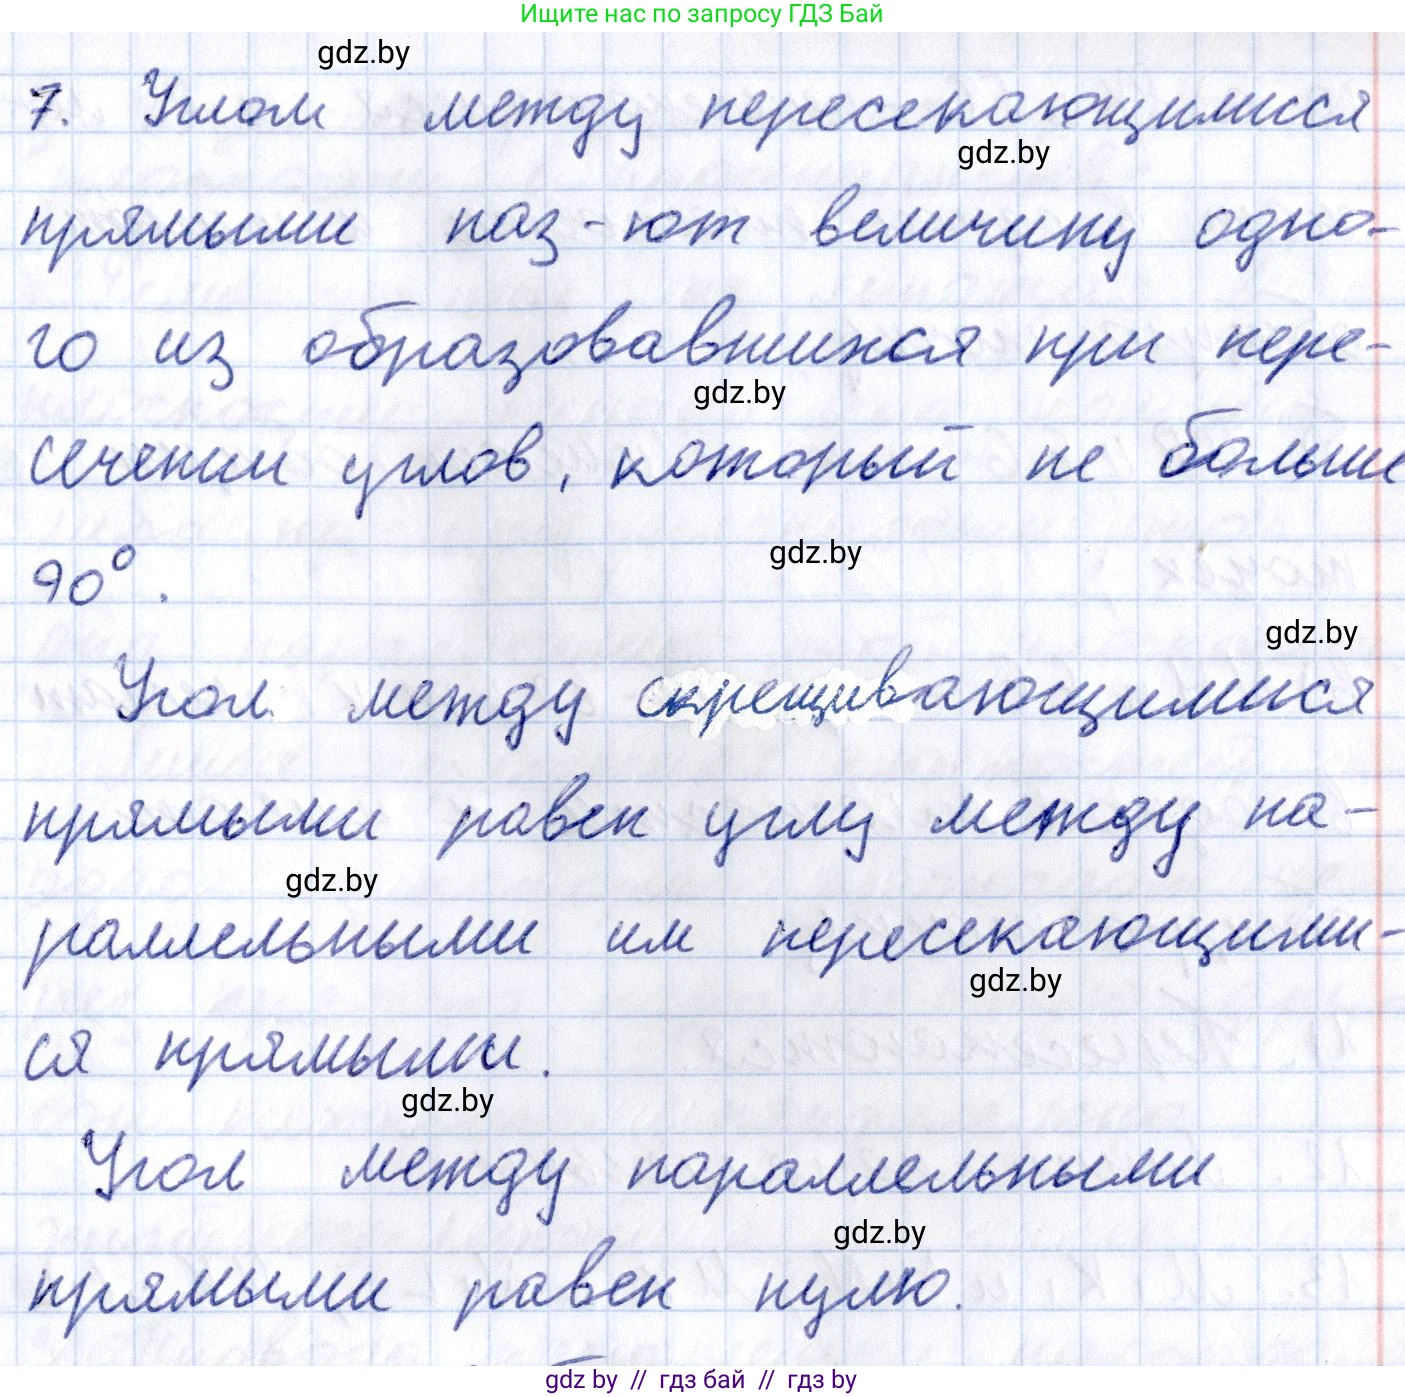 Ищите нас по запросу ГДЗ Бай
gdz.by
7. Углом между пересекающимися
gdz.by
прямыми наз-ют величину одно-
го из образовавшихся при пере-
gdz.by
сечении углов, который не больше
gdz.by
90°.
gdz.by
Угол между скрещивающимися
прямыми равен углу между па-
gdz.by
раллельными им пересекающими-
gdz.by
ся прямыми.
gdz.by
Угол между параллельными
gdz.by
прямыми равен нулю.
gdz by // гдз бай // gdz by